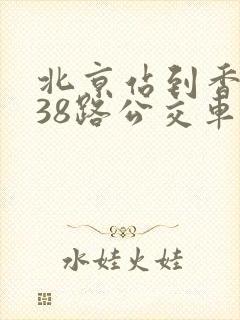 北京佔到香
38路公交車
水娃火娃